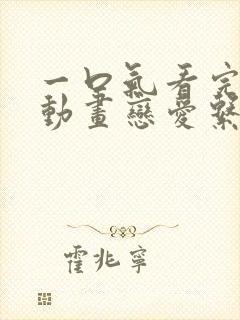 一口氣看完
動畫戀愛繫
霍兆寧